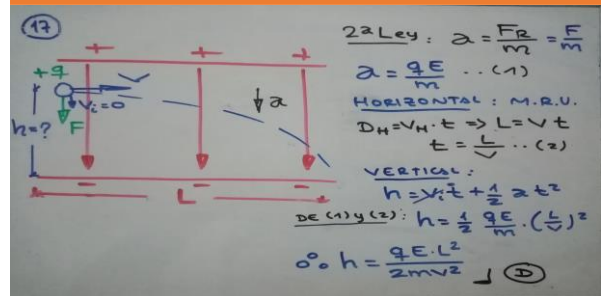 17
+ + +
+q
V
Vi=0
F
h=?
a
- - -
L
2a Ley: a = FR/m = F/m
a = qE/m ..(1)
HORIZONTAL: M.R.U.
DH=VH.t => L=Vt
t = L/V ..(2)
VERTICAL:
h=Vit + 1/2 at²
DE (1) y (2): h = 1/2 qE/m . (L/V)²
∴ h = qE.L²/2mv² D